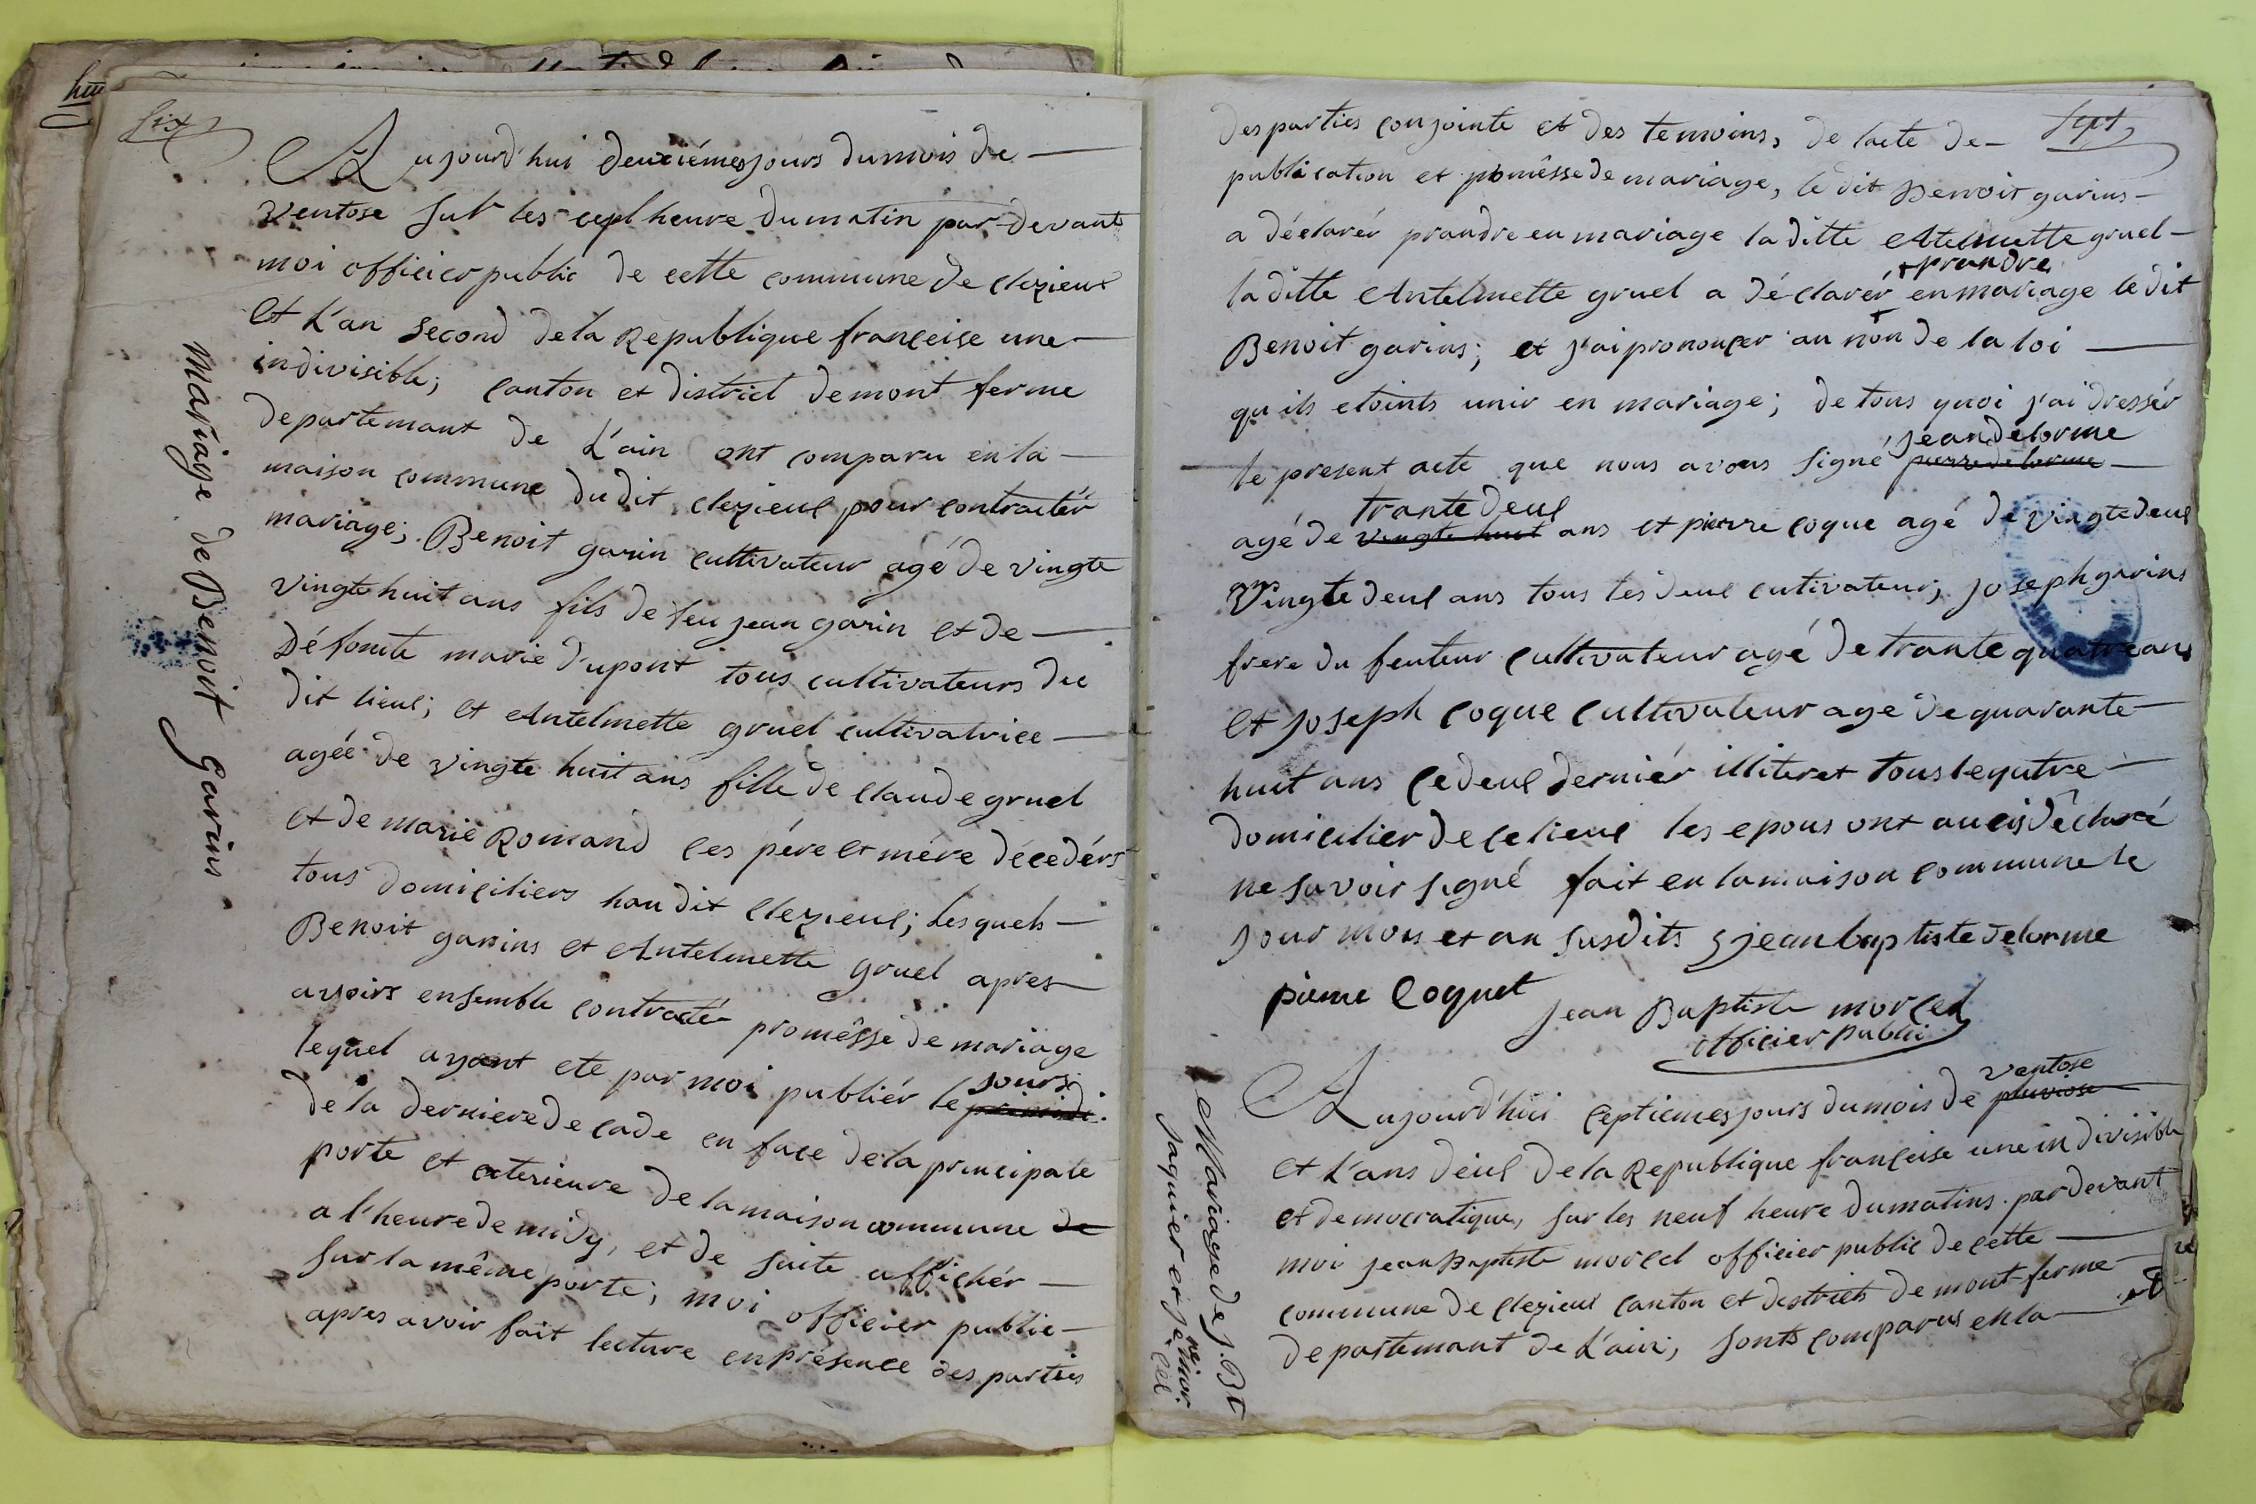 huit
Six
Aujourd'hui deuxiémes jours du mois de
ventose sur les cept heure du matin par-devant
moi officier public de cette commune de clezieux
Et L'an second de la Republique françeise une
indivisible; canton et district de mont ferme
departemant de L'ain ont comparu en la
maison commune du dit clezieul pour contractér
mariage; Benoit garin cultivateur agé de vingte
vingte huit ans fils de feu jean garin et de
Défonte marie Dupont tous cultivateurs du
dit lieul; et Antelmette gruel cultivatrice
agée de vingte huit ans fille de claude gruel
et de marie Romand ces pére et mére décedérs
tous domiciliers hau dit clezieul; Lesquels
Benoit garins et Antelmette gruel apres
avoirs ensemble contracté promêsse de mariage
lequel ayant ete par moi publiér le primidi jours
de la derniere decade en face de la principale
porte et exterieure de la maison commune de
a l'heure de midy, et de suite affichér
sur la même porte; moi officier public
apres avoir fait lecture en présence des parties
Mariage de Benoit Garins
Sept
des parties conjointe et des temoins, de l'acte de
publication et promêsse de mariage, le dit Benoit garins
a déclarér prandre en mariage la ditte Antelmette gruel
prandre
la ditte Antelmette gruel a déclarér en mariage le dit
Benoit garins; et j'ai prononcer au non de la loi
qu'ils etoints unir en mariage; de tous quoi j'ai dressér
jean delorme
le present acte que nous avons signé pierre delorme
trante deul
agé de vingte huit ans et pierre coque agé de vingte deul
ans
Vingte deul ans tous les deul cutivateur; joseph garins
frere du feuteur cultivateur agé de trante quatre ans
et joseph coque cultivateur age de quarante
huit ans ce deul derniér illiteret tous le qutre
domicilier de ce lieul les epous ont aucis dêclaré
ne savoir signé fait en la maison commune le
jour mois et an susdits jean baptiste delorme
pierre Coquet
jean Baptiste morcel
officier public
ventose
Aujourd'hui ceptiemes jours du mois de pluviose
et L'ans deul de la Republique françeise une indivisible
et democratique, sur les neuf heure du matins par devant
moi jean Baptiste morcel officier public de cette
commune de clezieul canton et districts de mont-ferme
departemant de L'ain; sonts comparus en la
Mariage de J. Bt
jaquier et jenne mor
cel